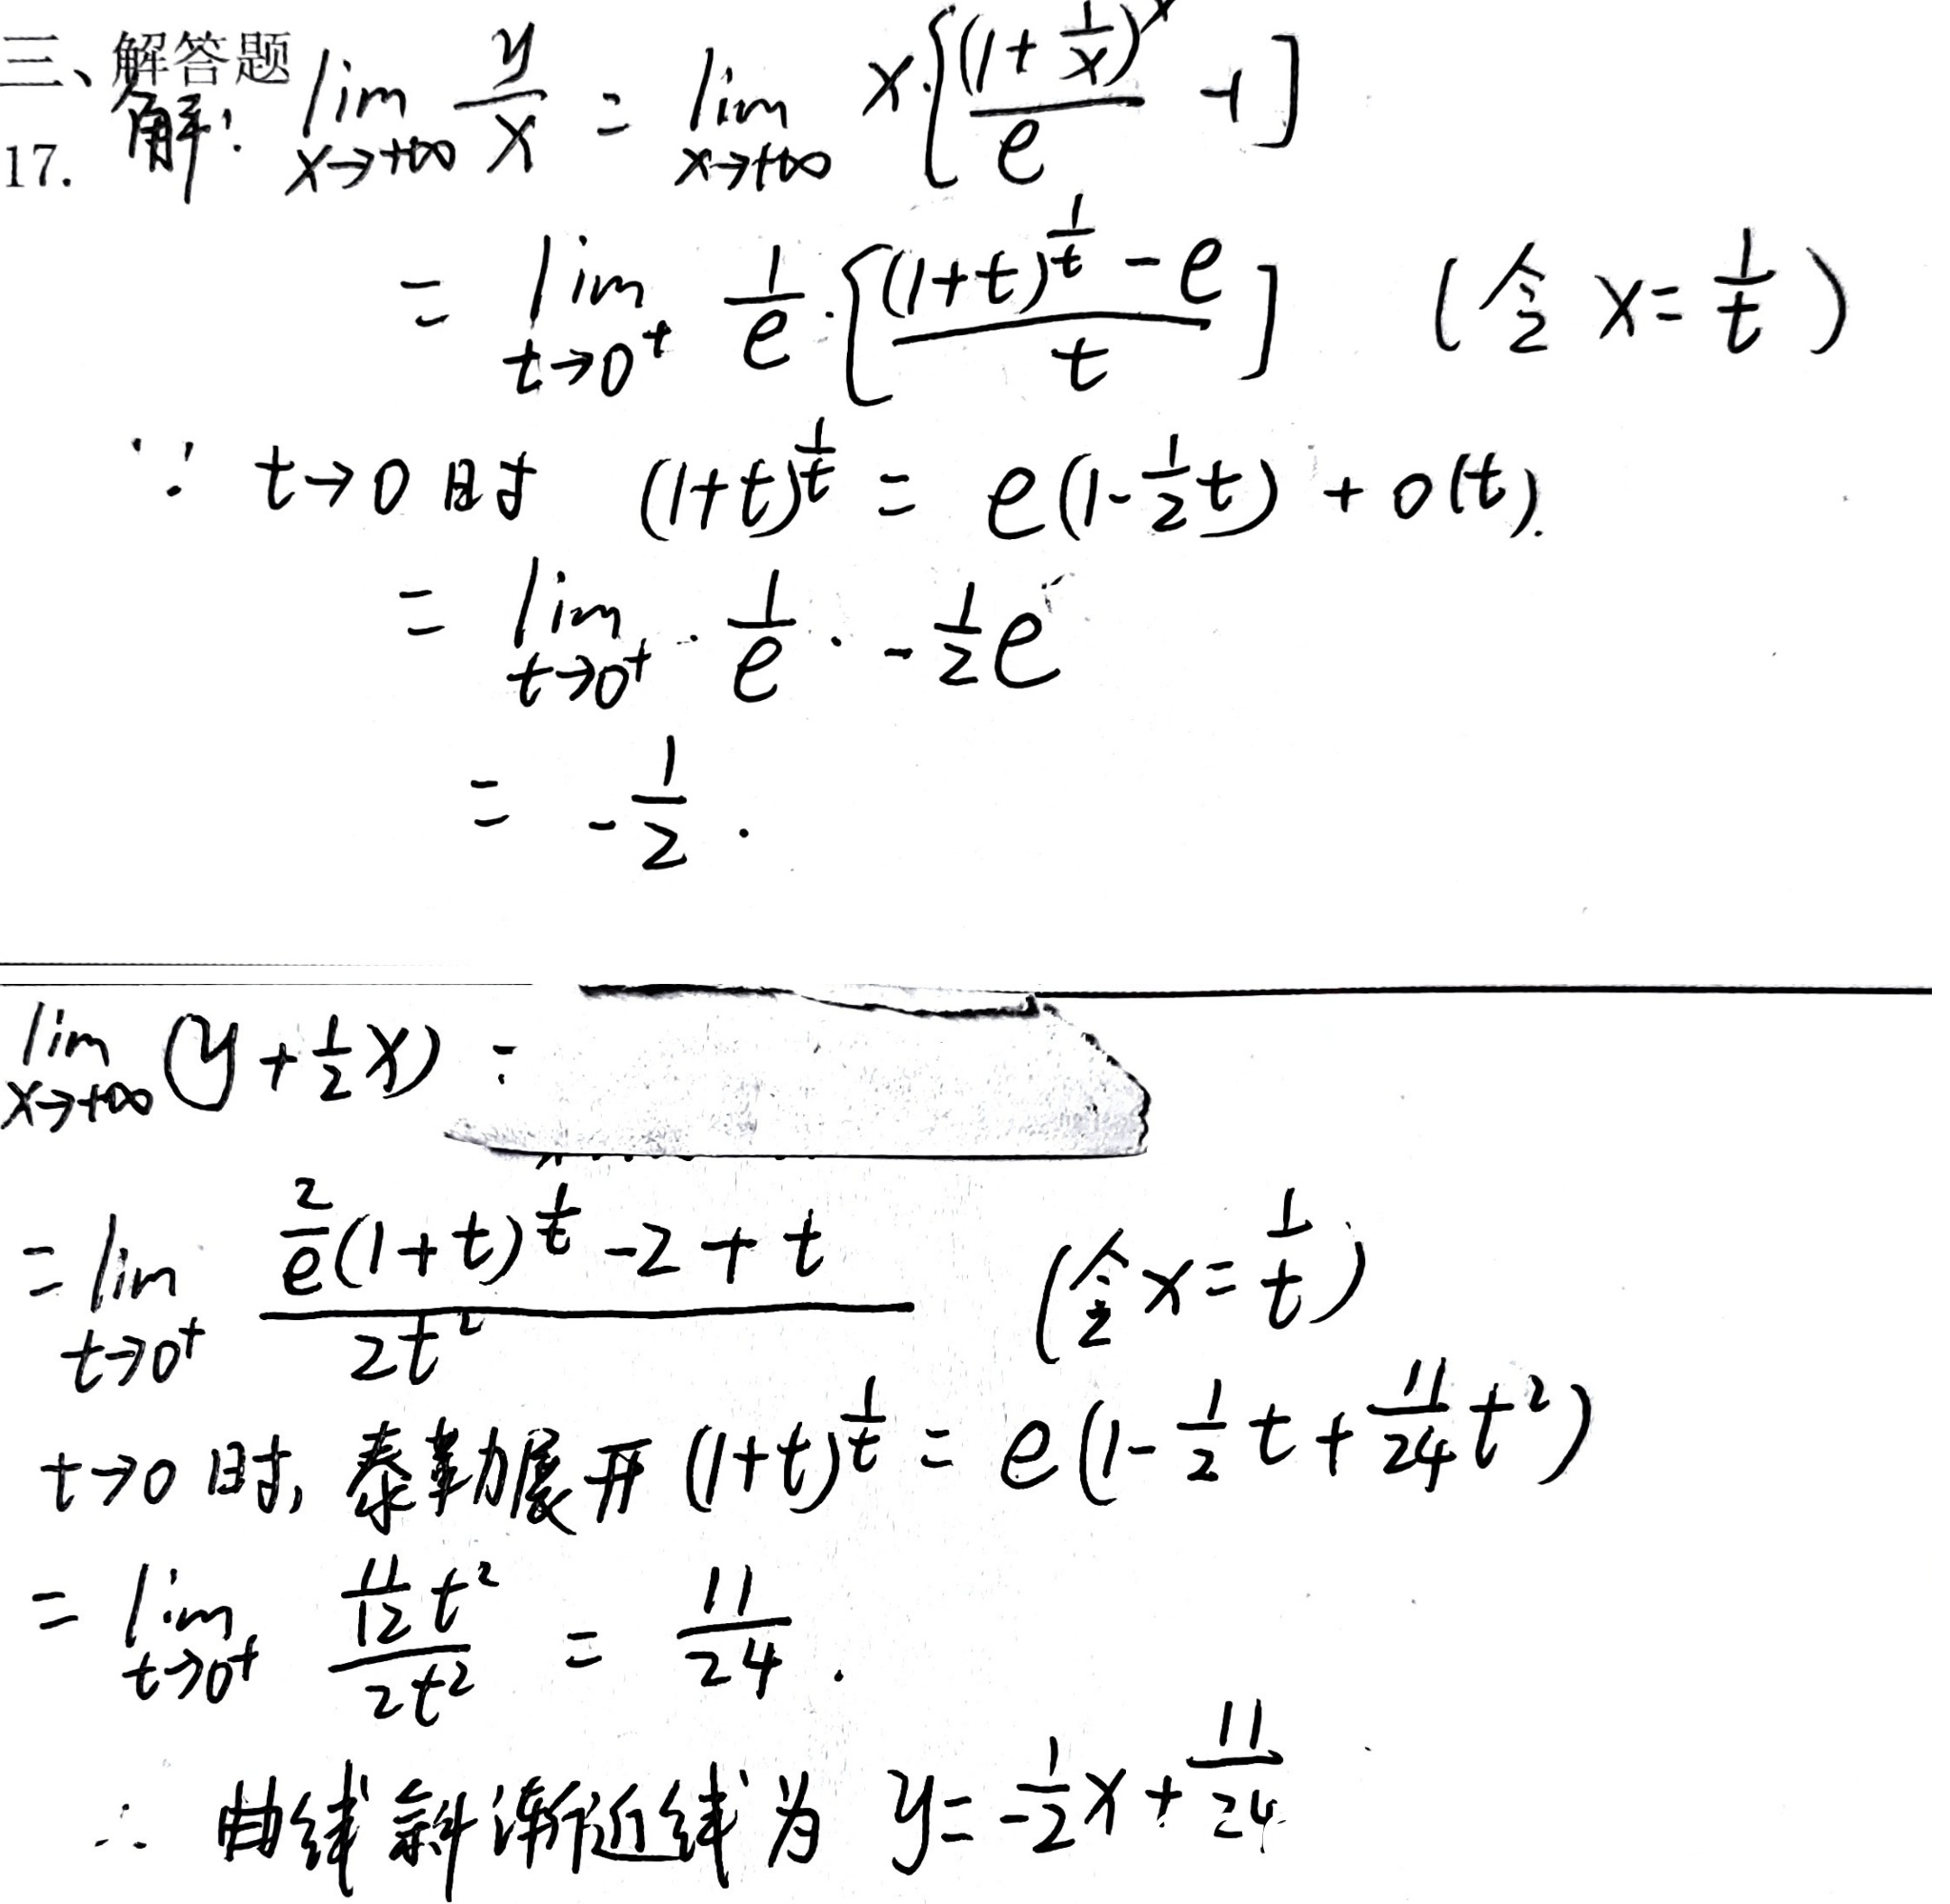 三、解答题
17. 解: lim_{x→+∞} y/x = lim_{x→+∞} x·[(1+1/x)^x/e -1]
= lim_{t→0⁺} 1/e·[((1+t)^{1/t} - e)/t] (令 x=1/t)
∵ t→0 时 (1+t)^{1/t} = e(1-1/2t) + o(t).
= lim_{t→0⁺} · 1/e · -1/2e
= -1/2.
lim_{x→+∞} (y+1/2x) =
= lim_{t→0⁺} (2/e(1+t)^{1/t} -2+t)/(2t²) (令 x=1/t)
t→0 时, 泰勒展开 (1+t)^{1/t} = e(1-1/2t+11/24t²)
= lim_{t→0⁺} (11/12t²)/(2t²) = 11/24.
∴ 曲线斜渐近线为 y=-1/2x+11/24